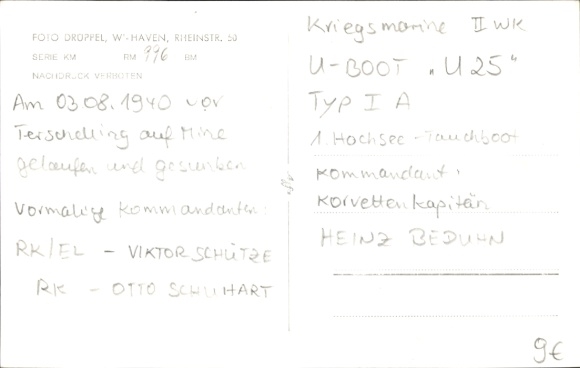 FOTO DRÜPPEL, W'HAVEN, RHEINSTR. 50
SERIE KM RM 996 BM
NACHDRUCK VERBOTEN
Am 03.08.1940 vor
Terschelling auf Mine
gelaufen und gesunken
Vormalige Kommandanten:
RK/EL - VIKTOR SCHÜTZE
RK - OTTO SCHUHART
Kriegsmarine II WK
U-BOOT "U 25"
TYP I A
1. Hochsee-Tauchboot
Kommandant:
Korvettenkapitän
HEINZ BEDUHN
9€